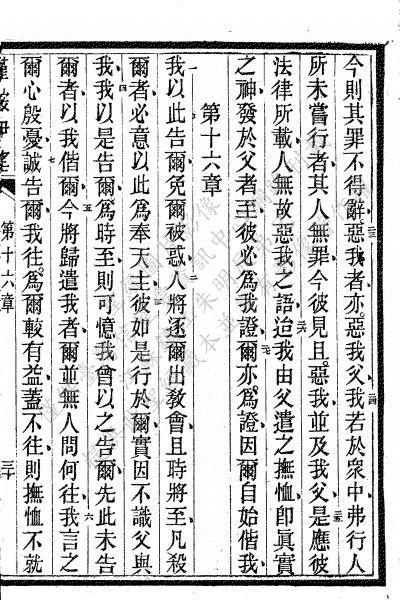 今則其罪不得辭惡我者亦惡我父我若於衆中弗行人
所未嘗行者其人無罪今彼見且惡我並及我父是應彼
法律所載人無故惡我之語迨我由父遣之撫恤卽眞實
之神發於父者至彼必爲我證爾亦爲證因爾自始偕我
第十六章
我以此告爾免爾被惑人將逐爾出敎會且時將至凡殺
爾者必意以此爲奉天主彼如是行於爾實因不識父與
我我以是告爾爲時至則可憶我曾以之告爾先此未告
爾者以我偕爾今將歸遣我者爾並無人問何往我言之
爾心殷憂誠告爾我往爲爾較有益蓋不往則撫恤不就
第十六章
三十